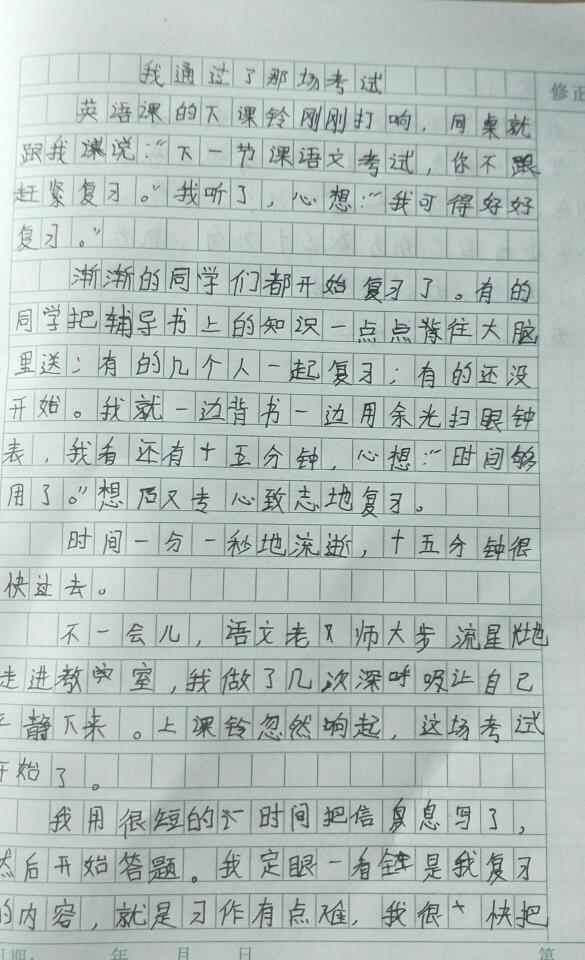 我通过了那场考试
修正
英语课的下课铃刚刚打响，同桌就
跟我说：“下一节课语文考试，你不跟
赶紧复习。”我听了，心想：“我可得好好
复习。”
渐渐的同学们都开始复习了。有的
同学把辅导书上的知识一点点背往大脑
里送；有的几个人一起复习；有的还没
开始。我就一边背书一边用余光扫眼钟
表，我看还有十五分钟，心想：“时间够
用了。”想后又专心致志地复习。
时间一分一秒地流逝，十五分钟很
快过去。
不一会儿，语文老师大步流星地
走进教室，我做了几次深呼吸让自己
平静下来。上课铃忽然响起，这场考试
开始了。
我用很短的时间把信息写了，
然后开始答题。我定眼一看全是我复习
的内容，就是习作有点难，我很快把
日期： 年 月 日 第